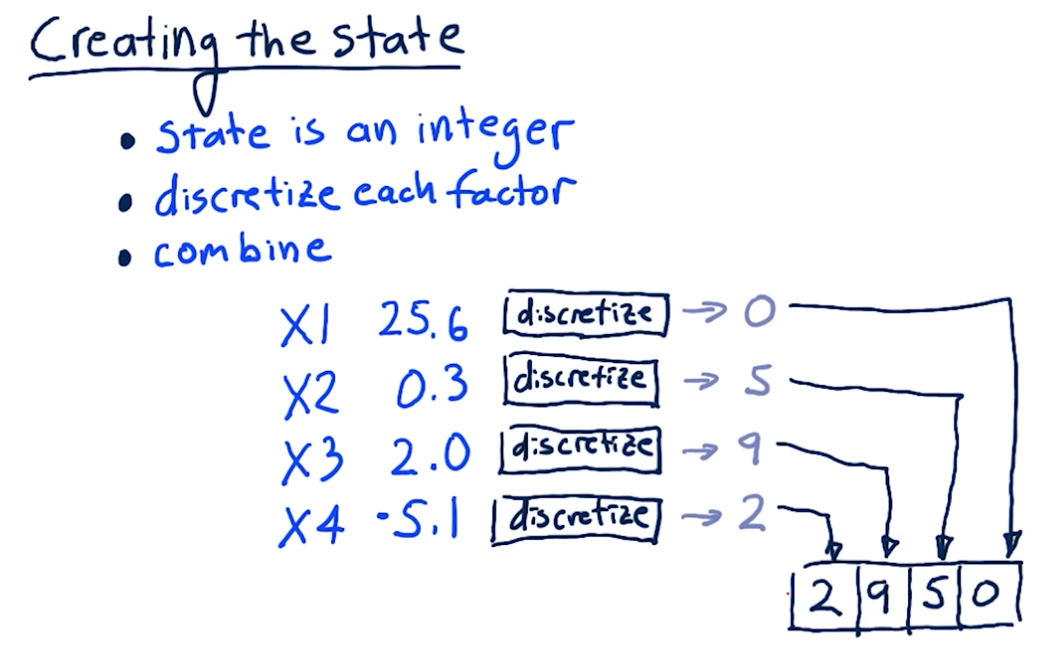 Creating the state
• state is an integer
• discretize each factor
• combine
X1 25.6 discretize → 0
X2 0.3 discretize → 5
X3 2.0 discretize → 9
X4 -5.1 discretize → 2
2 9 5 0